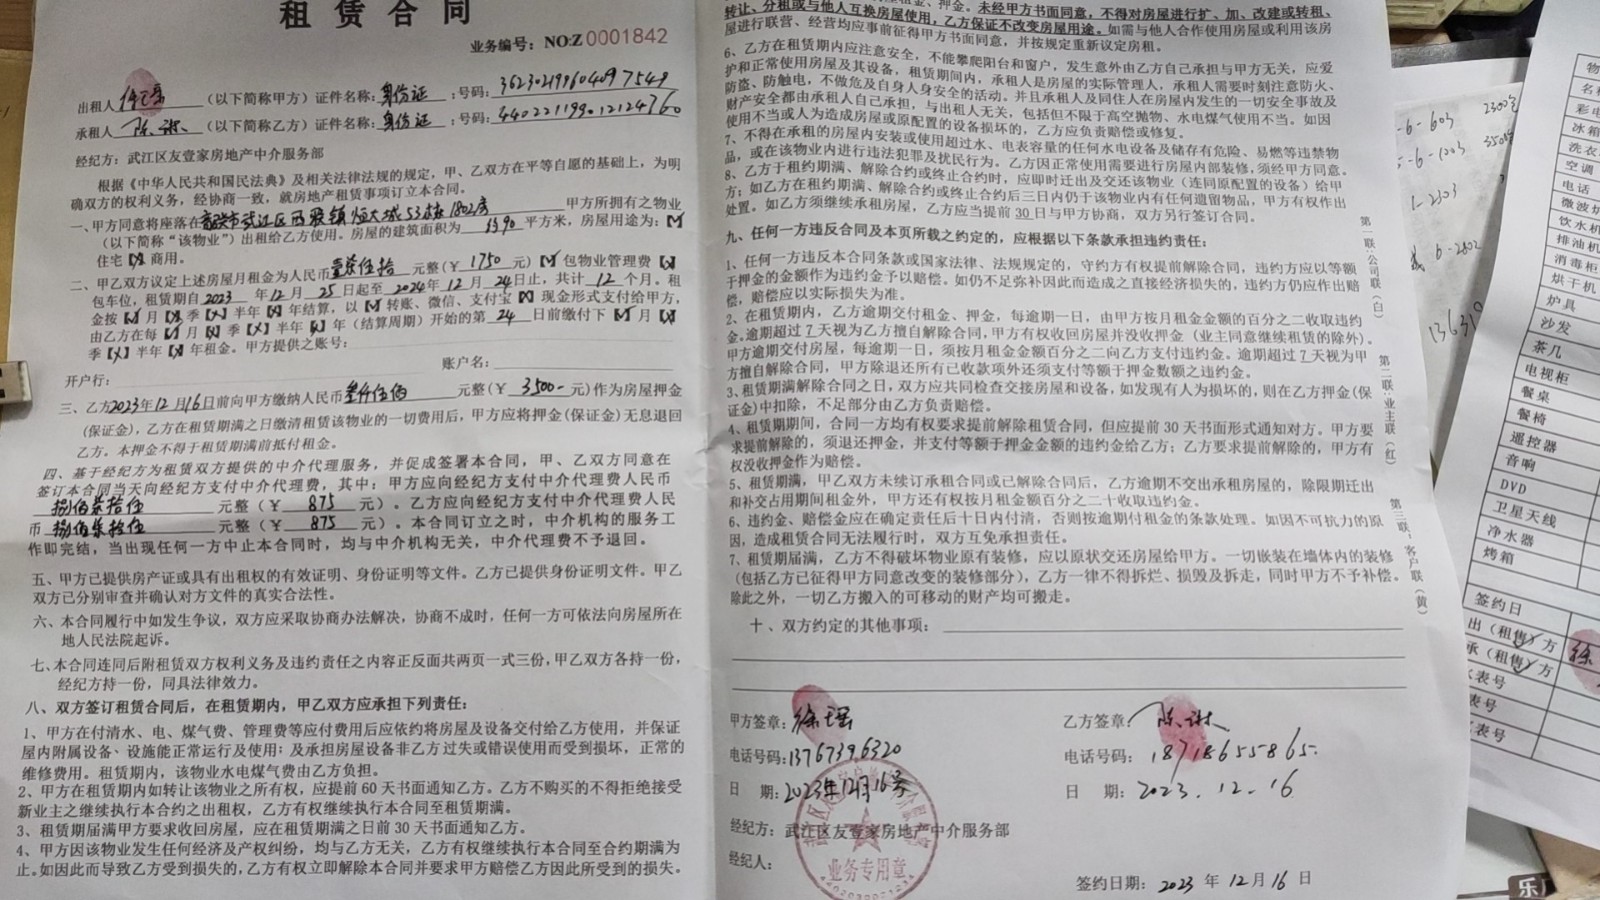 租赁合同
业务编号：NO:Z 0001842
出租人 （以下简称甲方）证件名称：身份证：号码：
承租人 陈 （以下简称乙方）证件名称：身份证：号码：
经纪方：武江区友壹家房地产中介服务部
根据《中华人民共和国民法典》及相关法律法规的规定，甲、乙双方在平等自愿的基础上，为明
确双方的权利义务，经协商一致，就房地产租赁事项订立本合同。
一、甲方同意将座落在韶关市武江区西联镇恒大城53栋1802房 甲方所拥有之物业
（以下简称“该物业”）出租给乙方使用。房屋的建筑面积为 平方米，房屋用途为：【✓】
住宅【X】商用。
二、甲乙方议定上述房屋月租金为人民币 元整（¥ 1750 元）【✓】包物业管理费【X】
包车位，租赁期自2023年12月25日起至2024年12月24日止，共计12个月。租
金按【✓】月【X】季【X】半年【X】年结算，以【✓】转账、微信、支付宝【X】现金形式支付给甲方，
由乙方在每【✓】月【X】季【X】半年【X】年（结算周期）开始的第24日前缴付下【✓】月【X】
季【X】半年【X】年租金。甲方提供之账号：
开户行： 账户名：
三、乙方2023年12月16日前向甲方缴纳人民币叁仟伍佰 元整（¥ 3500- 元)作为房屋押金
(保证金)，乙方在租赁期满之日缴清租赁该物业的一切费用后，甲方应将押金(保证金)无息退回
乙方。本押金不得于租赁期满前抵付租金。
四、基于经纪方为租赁双方提供的中介代理服务，并促成签署本合同，甲、乙双方同意在
签订本合同当天向经纪方支付中介代理费，其中：甲方应向经纪方支付中介代理费人民币
捌佰柒拾伍 元整（¥ 875 元）。乙方应向经纪方支付中介代理费人民
币捌佰柒拾伍 元整（¥ 875 元）。本合同订立之时，中介机构的服务工
作即完结，当出现任何一方中止本合同时，均与中介机构无关，中介代理费不予退回。
五、甲方已提供房产证或具有出租权的有效证明、身份证明等文件。乙方已提供身份证明文件。甲乙
双方已分别审查并确认对方文件的真实合法性。
六、本合同履行中如发生争议，双方应采取协商办法解决，协商不成时，任何一方可依法向房屋所在
地人民法院起诉。
七、本合同连同后附租赁双方权利义务及违约责任之内容正反面共两页一式三份，甲乙双方各持一份，
经纪方持一份，同具法律效力。
八、双方签订租赁合同后，在租赁期内，甲乙双方应承担下列责任：
1、甲方在付清水、电、煤气费、管理费等应付费用后应依约将房屋及设备交付给乙方使用，并保证
屋内附属设备、设施能正常运行及使用；及承担房屋设备非乙方过失或错误使用而受到损坏，正常的
维修费用。租赁期内，该物业水电煤气费由乙方负担。
2、甲方在租赁期内如转让该物业之所有权，应提前60天书面通知乙方。乙方不购买的不得拒绝接受
新业主之继续执行本合约之出租权，乙方有权继续执行本合同至租赁期满。
3、租赁期届满甲方要求收回房屋，应在租赁期满之日前30天书面通知乙方。
4、甲方因该物业发生任何经济及产权纠纷，均与乙方无关，乙方有权继续执行本合同至合约期满为
止。如因此而导致乙方受到损失的，乙方有权立即解除本合同并要求甲方赔偿乙方因此所受到的损失。
租金、押金。未经甲方书面同意，不得对房屋进行扩、加、改建或转租、
转让、分租或与他人互换房屋使用，乙方保证不改变房屋用途。如需与他人合作使用房屋或利用该房
屋进行联营、经营均应事前征得甲方书面同意，并按规定重新议定房租。
6、乙方在租赁期内应注意安全，不能攀爬阳台和窗户，发生意外由乙方自己承担与甲方无关，应爱
护和正常使用房屋及其设备，租赁期间内，承租人是房屋的实际管理人，承租人需要时刻注意防火、
防盗、防触电，不做危及自身人身安全的活动。并且承租人及同住人在房屋内发生的一切安全事故及
财产安全都由承租人自己承担，与出租人无关，包括但不限于高空抛物、水电煤气使用不当。如因
使用不当或人为造成房屋或原配置的设备损坏的，乙方应负责赔偿或修复。
7、不得在承租的房屋内安装或使用超过水、电表容量的任何水电设备及储存有危险、易燃等违禁物
品，或在该物业内进行违法犯罪及扰民行为。乙方因正常使用需要进行房屋内部装修，须经甲方同意。
8、乙方于租约期满、解除合约或终止合约时，应即时迁出及交还该物业（连同原配置的设备）给甲
方；如乙方在租约期满、解除合约或终止合约后三日内仍于该物业内有任何遗留物品，甲方有权作出
处置。如乙方须继续承租房屋，乙方应当提前30日与甲方协商，双方另行签订合同。
九、任何一方违反合同及本页所载之约定的，应根据以下条款承担违约责任：
1、任何一方违反本合同条款或国家法律、法规规定的，守约方有权提前解除合同，违约方应以等额
于押金的金额作为违约金予以赔偿。如仍不足弥补因此而造成之直接经济损失的，违约方仍应作出赔
偿，赔偿应以实际损失为准。
2、在租赁期内，乙方逾期交付租金、押金，每逾期一日，由甲方按月租金金额的百分之二收取违约
金。逾期超过7天视为乙方擅自解除合同，甲方有权收回房屋并没收押金（业主同意继续租赁的除外）。
甲方逾期交付房屋，每逾期一日，须按月租金金额百分之二向乙方支付违约金。逾期超过7天视为甲
方擅自解除合同，甲方除退还所有已收款项外还须支付等额于押金数额之违约金。
3、租赁期满解除合同之日，双方应共同检查交接房屋和设备，如发现有人为损坏的，则在乙方押金(保
证金)中扣除，不足部分由乙方负责赔偿。
4、租赁期期间，合同一方均有权要求提前解除租赁合同，但应提前30天书面形式通知对方。甲方要
求提前解除的，须退还押金，并支付等额于押金金额的违约金给乙方；乙方要求提前解除的，甲方有
权没收押金作为赔偿。
5、租赁期满，甲乙双方未续订承租合同或已解除合同后，乙方逾期不交出承租房屋的，除限期迁出
和补交占用期间租金外，甲方还有权按月租金额百分之二十收取违约金。
6、违约金、赔偿金应在确定责任后十日内付清，否则按逾期付租金的条款处理。如因不可抗力的原
因，造成租赁合同无法履行时，双方互免承担责任。
7、租赁期届满，乙方不得破坏物业原有装修，应以原状交还房屋给甲方。一切嵌装在墙体内的装修
(包括乙方已征得甲方同意改变的装修部分)，乙方一律不得拆烂、损毁及拆走，同时甲方不予补偿。
除此之外，一切乙方搬入的可移动的财产均可搬走。
十、双方约定的其他事项：
甲方签章：徐瑶
乙方签章：陈
电话号码：13767396320
电话号码：18718655865
日 期：2023年12月16号
日 期：2023.12.16
经纪方：武江区友壹家房地产中介服务部
经纪人：
业务专用章
签约日期：2023年12月16日
第一联：公司联（白）
第二联：业主联（红）
第三联：客户联（黄）
-6-603
-6-1203
1-2303
6-2802
彩电
冰箱
洗衣
空调
电话
微波炉
饮水机
排油机
消毒柜
烘干机
炉具
沙发
茶几
电视柜
餐桌
餐椅
遥控器
音响
DVD
卫星天线
净水器
烤箱
签约日
出（租售）方
承（租售）方
表号
表号
表号